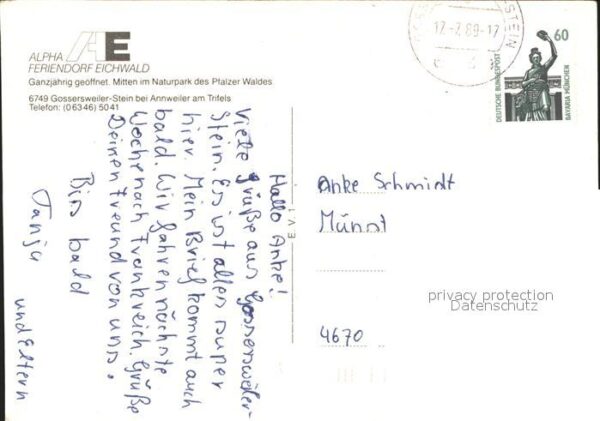 ALPHA AE
FERIENDORF EICHWALD
Ganzjährig geöffnet. Mitten im Naturpark des Pfälzer Waldes.
6749 Gossersweiler-Stein bei Annweiler am Trifels
Telefon: (06346) 5041
Hallo Anke!
Viele Grüße aus Gossersweiler-
Stein. Es ist alles super
hier. Mein Brief kommt auch
bald. Wir fahren nächste
Woche nach Frankreich. Grüße
Deinen Freund von uns.
Bis bald
Tanja
und Eltern
EV1
STEIN
17.-7.89-17
60
DEUTSCHE BUNDESPOST
BAVARIA MÜNCHEN
Anke Schmidt
Münst
4670
privacy protection
Datenschutz